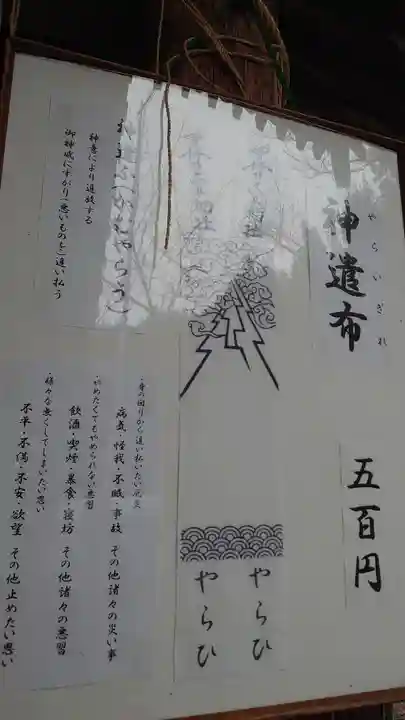 やらいぎれ
神遣布
五百円
やらひ
やらひ
(かむやらう)
神意により追放する
御神威にすがり「悪いものを」追い払う
・身の回りから追い払いたい厄災
病気・怪我・不眠・事故 その他諸々の災い事
・やめたくてもやめられない悪習
飲酒・喫煙・暴食・寝坊 その他諸々の悪習
・様々な無くしてしまいたい思い
不幸・不満・不安・欲望 その他止めたい思い